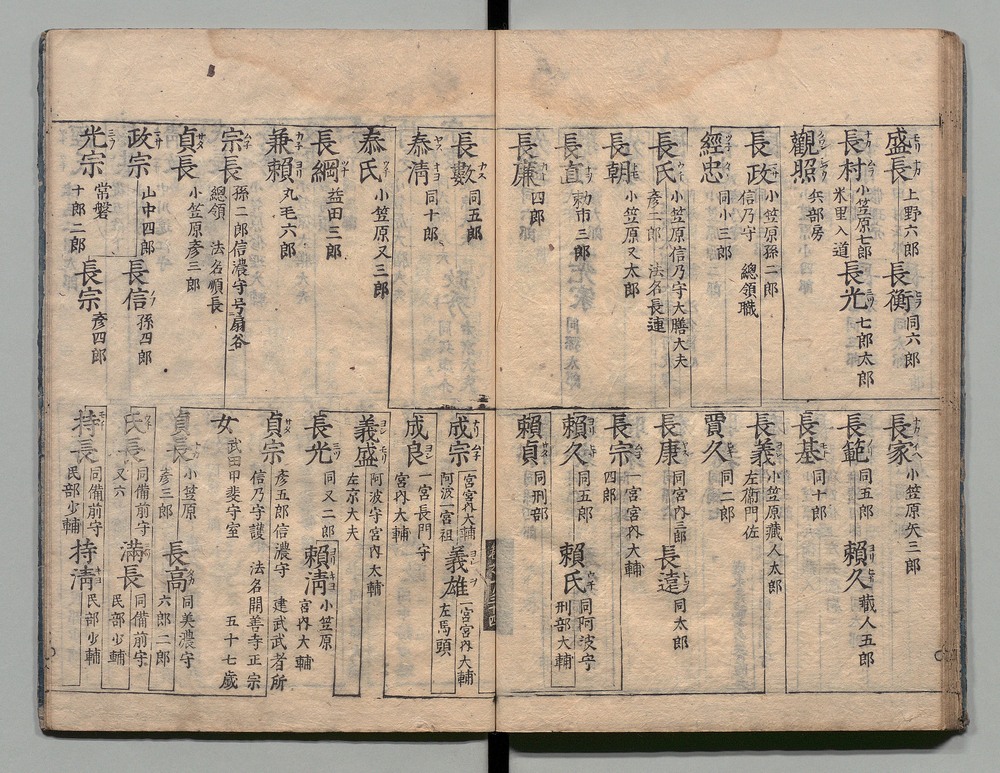 盛長 上野六郎
長衡 同六郎
長村 小笠原七郎 米里入道
長光 七郎太郎
觀照 兵部房
長政 小笠原孫二郎 信乃守 總領職
經忠 同小三郎
長氏 小笠原信乃守大膳大夫 彥二郎 法名長連
長朝 小笠原又太郎
長直 三郎
長廉 四郎
長數 同五郎
泰清 同十郎
泰氏 小笠原又三郎
長綱 益田三郎
兼頼 丸毛六郎
宗長 孫二郎信濃守号扇谷 總領 法名順長
貞長 小笠原彥三郎
政宗 山中四郎
長信 孫四郎
光宗 常磐 十郎二郎
長宗 彥四郎
長家 小笠原矢三郎
長範 同五郎
賴久 藏人五郎
長基 同十郎
長義 小笠原藏人太郎 左衞門佐
賈久 同二郎
長康 同宮內三郎
長遠 同太郎
長宗 一宮宮內大輔 四郎
賴久 同五郎
賴氏 同阿波守 刑部大輔
賴貞 同刑部
成宗 一宮宮內大輔 阿波一宮祖
義雄 一宮宮內大輔 左馬頭
成良 一宮長門守 宮內大輔
義盛 阿波守宮內太輔 左京大夫
長光 同又二郎
賴淸 小笠原 宮內大輔
貞宗 彥五郎信濃守 建武武者所 信乃守護 法名開善寺正宗 五十七歲
女 武田甲斐守室
貞長 小笠原 彥三郎
長高 同美濃守 六郎二郎
氏長 同備前守 又六
滿長 同備前守 民部少輔
持長 同備前守 民部少輔
持淸 民部少輔